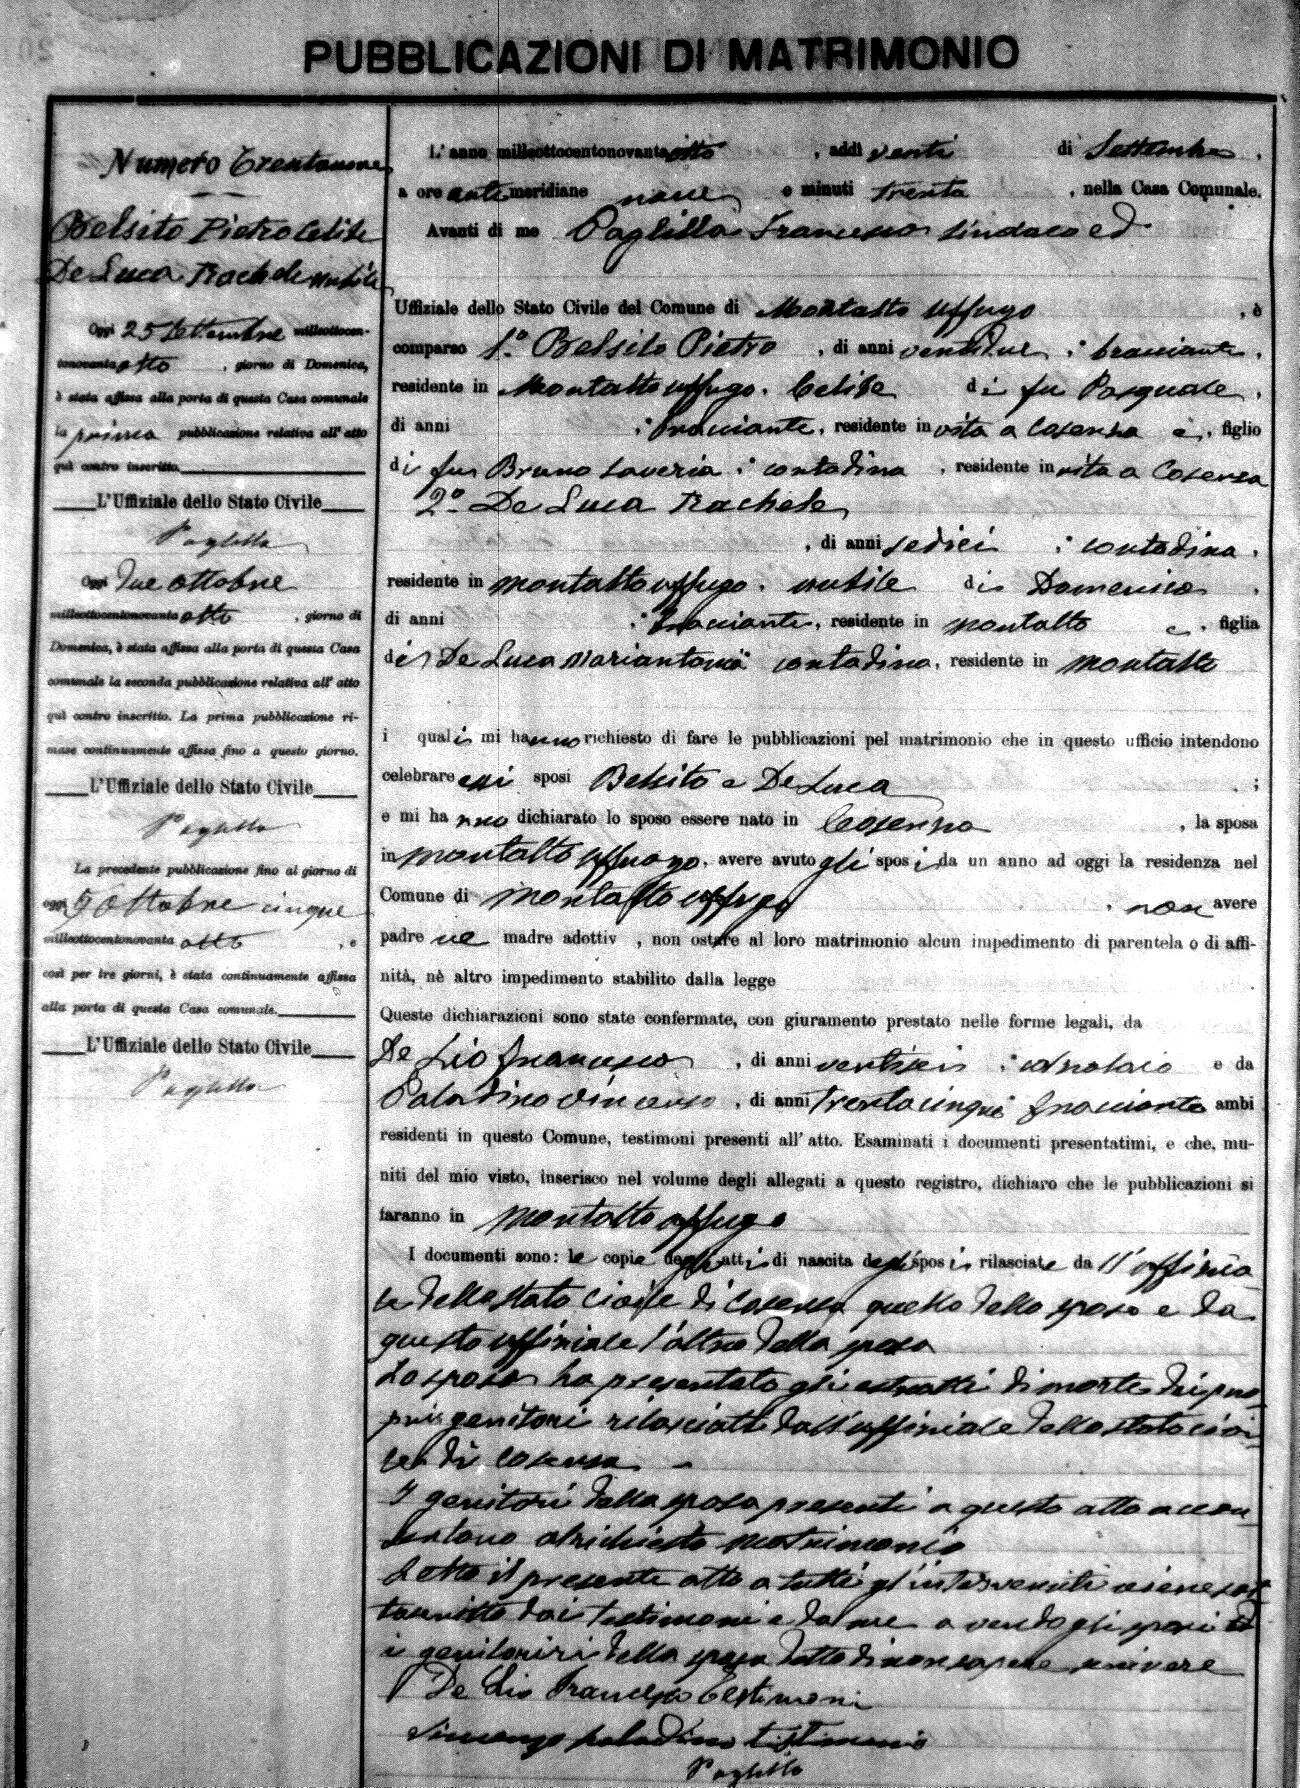 PUBBLICAZIONI DI MATRIMONIO
Numero Trentanove
Belsito Pietro Celibe
De Luca Rachele nubile
Oggi 25 Settembre milleottocen-
tonovanta otto, giorno di Domenica,
è stata affissa alla porta di questa Casa comunale
la prima pubblicazione relativa all'atto
quì contro inscritto.
L'Uffiziale dello Stato Civile
Paglilla
Oggi due ottobre
milleottocentonovanta otto, giorno di
Domenica, è stata affissa alla porta di questa Casa
comunale la seconda pubblicazione relativa all'atto
quì contro inscritto. La prima pubblicazione ri-
mase continuamente affissa fino a questo giorno.
L'Uffiziale dello Stato Civile
Paglilla
La precedente pubblicazione fino al giorno di
oggi 5 ottobre cinque
milleottocentonovanta otto, e
così per tre giorni, è stata continuamente affissa
alla porta di questa Casa comunale.
L'Uffiziale dello Stato Civile
Paglilla
L'anno milleottocentonovanta otto, addì venti di Settembre,
a ore ante meridiane nove e minuti trenta, nella Casa Comunale.
Avanti di me Paglilla Francesco Sindaco ed
Uffiziale dello Stato Civile del Comune di Montalto Uffugo, è
comparso 1º Belsito Pietro, di anni ventidue, bracciante,
residente in Montalto uffugo. Celibe di fu Pasquale,
di anni bracciante, residente in vita a Cosenza e, figlio
di fu Bruno Saveria, contadina, residente in vita a Cosenza
2º De Luca Rachele
, di anni sedici, contadina,
residente in montalto uffugo. nubile di Domenico,
di anni bracciante, residente in montalto e, figlia
di De Luca Mariantonia contadina, residente in montalto
i quali mi hanno richiesto di fare le pubblicazioni pel matrimonio che in questo ufficio intendono
celebrare essi sposi Belsito e De Luca ;
e mi hanno dichiarato lo sposo essere nato in Cosenza, la sposa
in montalto uffugo, avere avuto gli sposi da un anno ad oggi la residenza nel
Comune di montalto uffugo, non avere
padre ne madre adottiv , non ostare al loro matrimonio alcun impedimento di parentela o di affi-
nità, nè altro impedimento stabilito dalla legge
Queste dichiarazioni sono state confermate, con giuramento prestato nelle forme legali, da
De Lio Francesco, di anni ventisei, e da
Paladino Vincenzo, di anni trentacinque bracciante ambi
residenti in questo Comune, testimoni presenti all'atto. Esaminati i documenti presentatimi, e che, mu-
niti del mio visto, inserisco nel volume degli allegati a questo registro, dichiaro che le pubblicazioni si
faranno in montalto uffugo
I documenti sono: le copie degli atti di nascita degli sposi rilasciate da ll'uffizia
le dello stato civile di Cosenza quello dello sposo e da
questo uffiziale l'altro della sposa
Lo sposo ha presentato gli estratti di morte dei pro
pri genitori rilasciati dall'uffiziale dello stato civi
le di Cosenza
I genitori della sposa presenti a questo atto accon
sentono al richiesto matrimonio
Letto il presente atto a tutti gl'intervenuti viene sot
toscritto dai testimoni e da me avendo gli sposi ed
i genitori della sposa detto di non sapere scrivere
De Lio Francesco Testimoni
Vincenzo paladino tistimonio
Paglilla